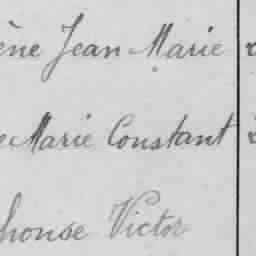 ène Jean Marie
e Marie Constant
honse Victor